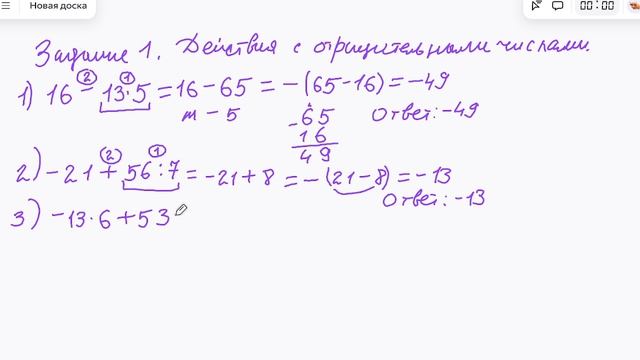 Новая доска
00:00
Задание 1. Действия с отрицательными числами.
② ①
1) 16 - 13·5 = 16 - 65 = -(65 - 16) = -49
m - 5
-65
16
49
Ответ: -49
② ①
2) -21 + 56 : 7 = -21 + 8 = -(21 - 8) = -13
Ответ: -13
3) -13·6 + 53